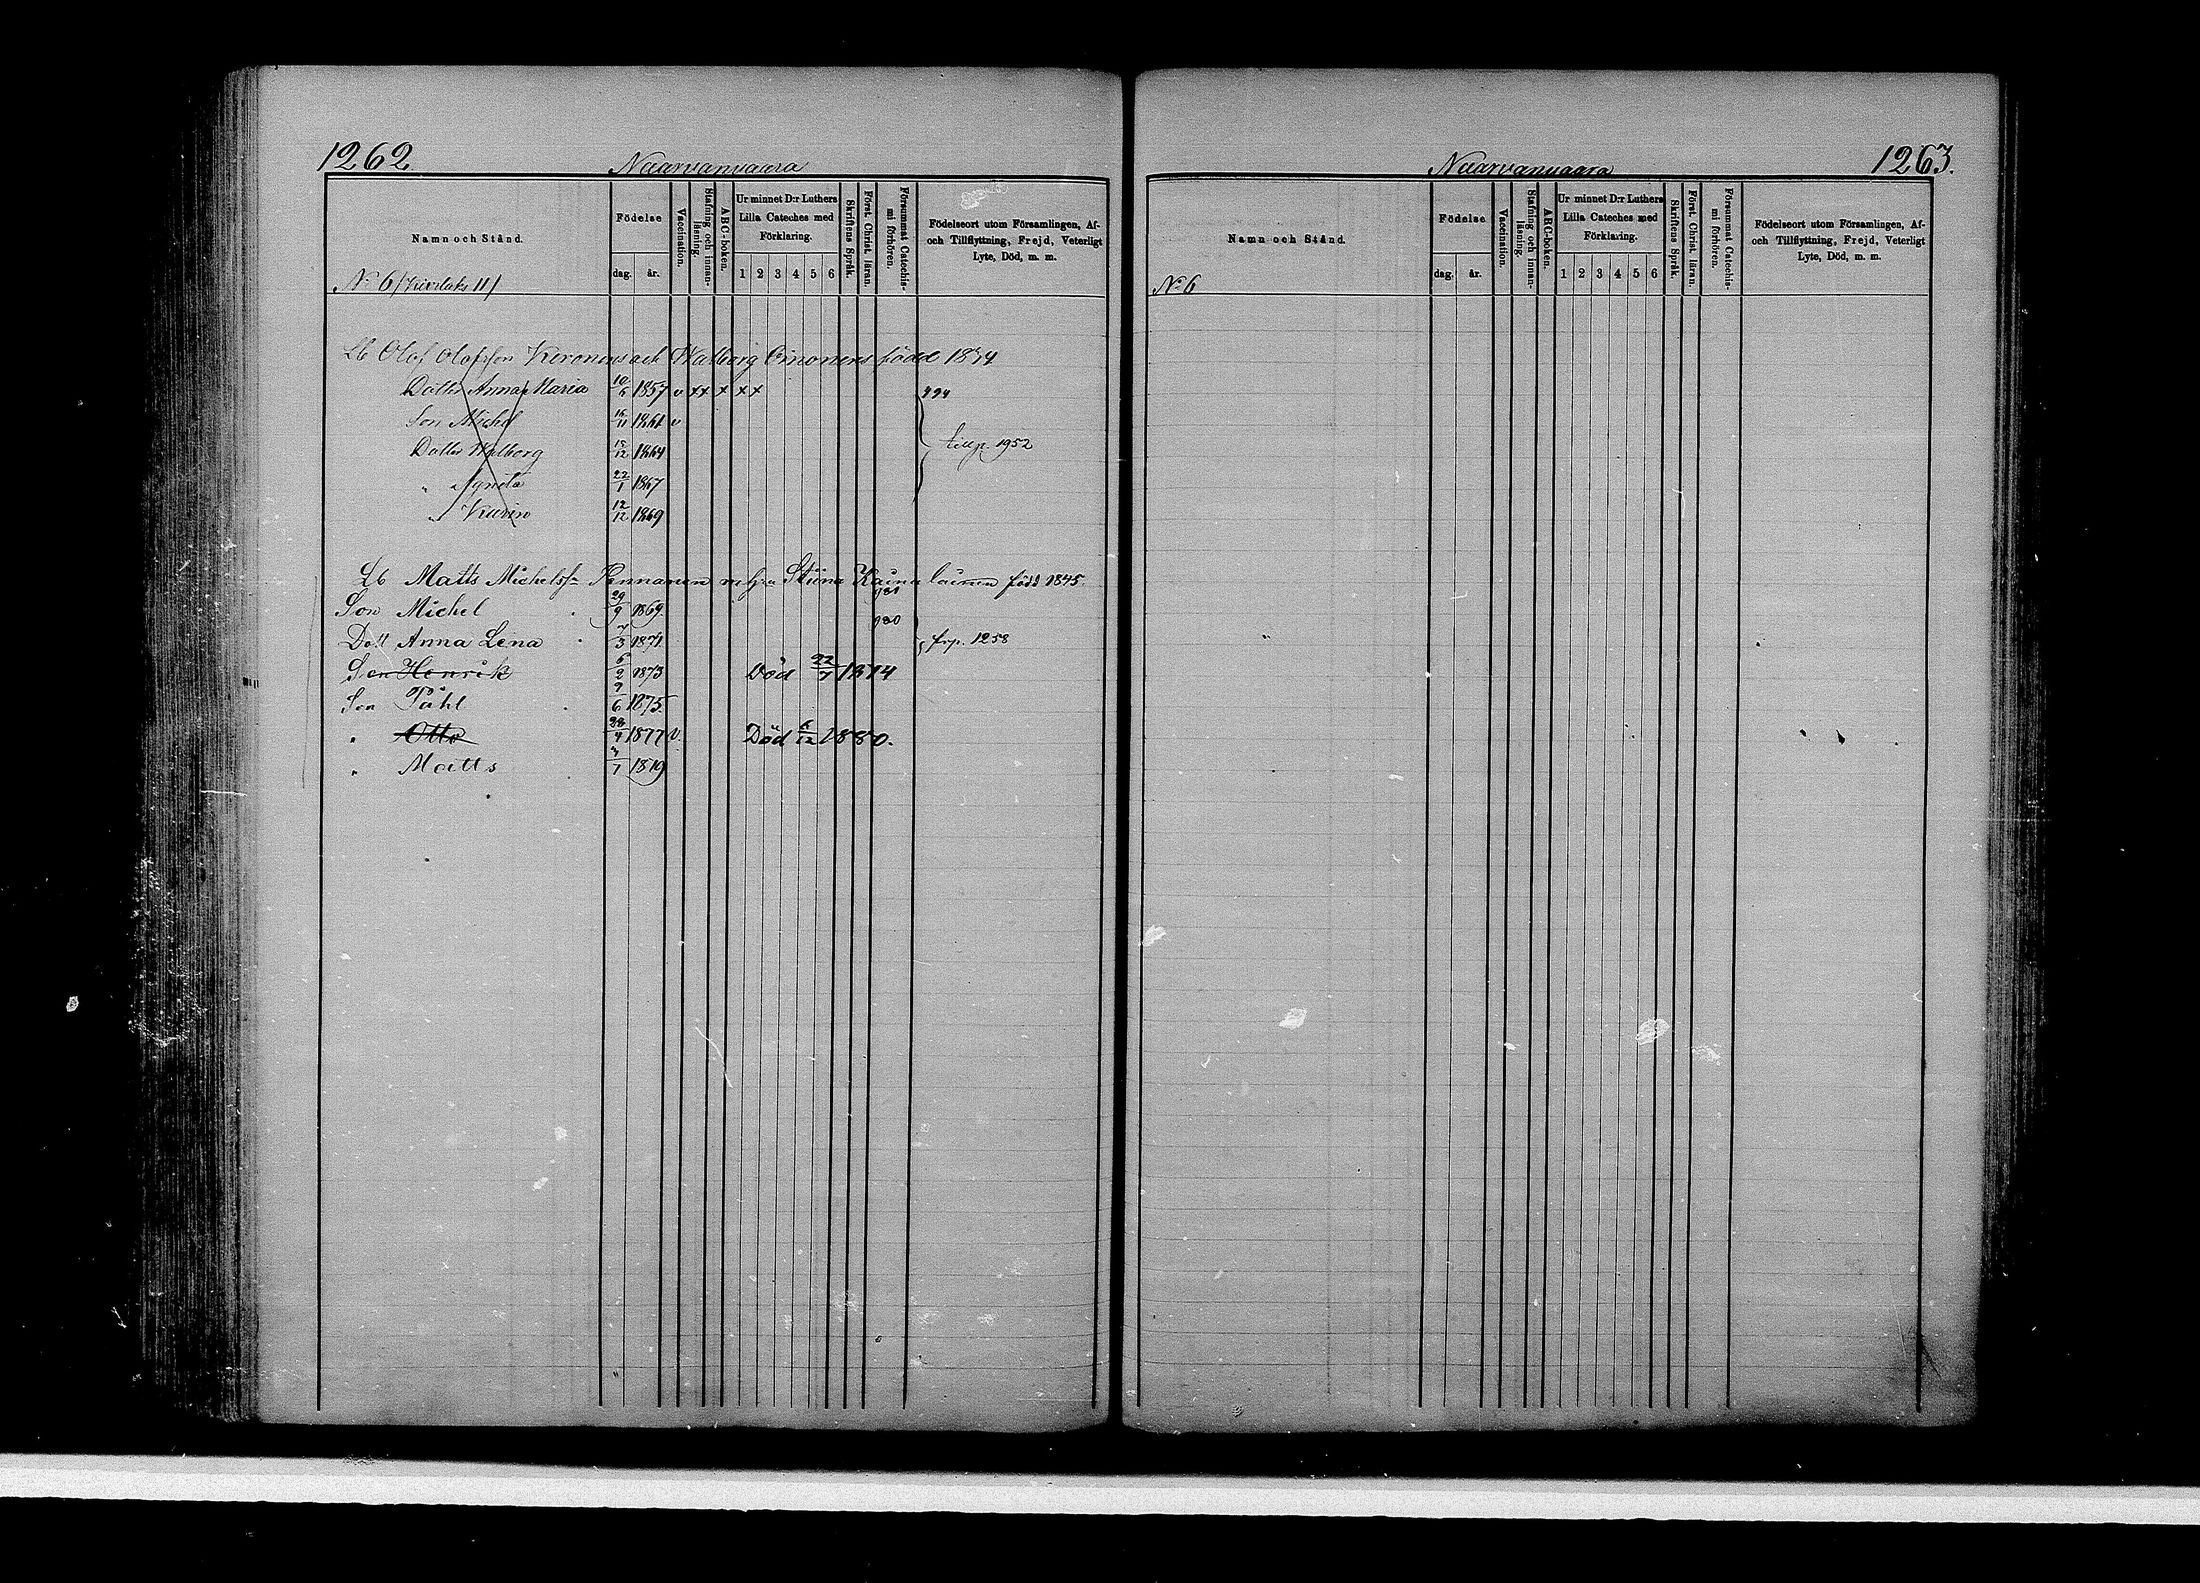 1262.
Naarvanvaara
Namn och Stånd.
Födelse
dag.
år.
Vaccination.
Stafning och innanläsning.
ABC-boken.
Ur minnet D:r Luthers
Lilla Cateches med
Förklaring.
1 2 3 4 5 6
Skriftens Språk.
Först. Christ. läran.
Försummat Catechismi förhören.
Födelseort utom Församlingen, Af-
och Tillflyttning, Frejd, Veterligt
Lyte, Död, m. m.
No 6
Lb Olof Olofsson och Walborg född
Dotter Anna Maria 10/6 1857 v xx x xx
Son Michel 16/11 1861 v
Dotter Walborg 15/12 1864 1952
" Agneta 22/1 1867
" Karin 12/12 1869
Lb Matts Michelss: Pennanen Stiina född 1845.
Son Michel 29/9 1869. 980
Dott Anna Lena 7/3 1871. 1258
Son Henrik 6/2 1873 Död 22/7 1874
Son Påhl 9/6 1875
" Otto 28/4 1877 v. Död 6/12 1880.
" Matts 3/7 1879
1263.
Naarvanvaara
Namn och Stånd.
Födelse
dag.
år.
Vaccination.
Stafning och innanläsning.
ABC-boken.
Ur minnet D:r Luthers
Lilla Cateches med
Förklaring.
1 2 3 4 5 6
Skriftens Språk.
Först. Christ. läran.
Försummat Catechismi förhören.
Födelseort utom Församlingen, Af-
och Tillflyttning, Frejd, Veterligt
Lyte, Död, m. m.
No 6